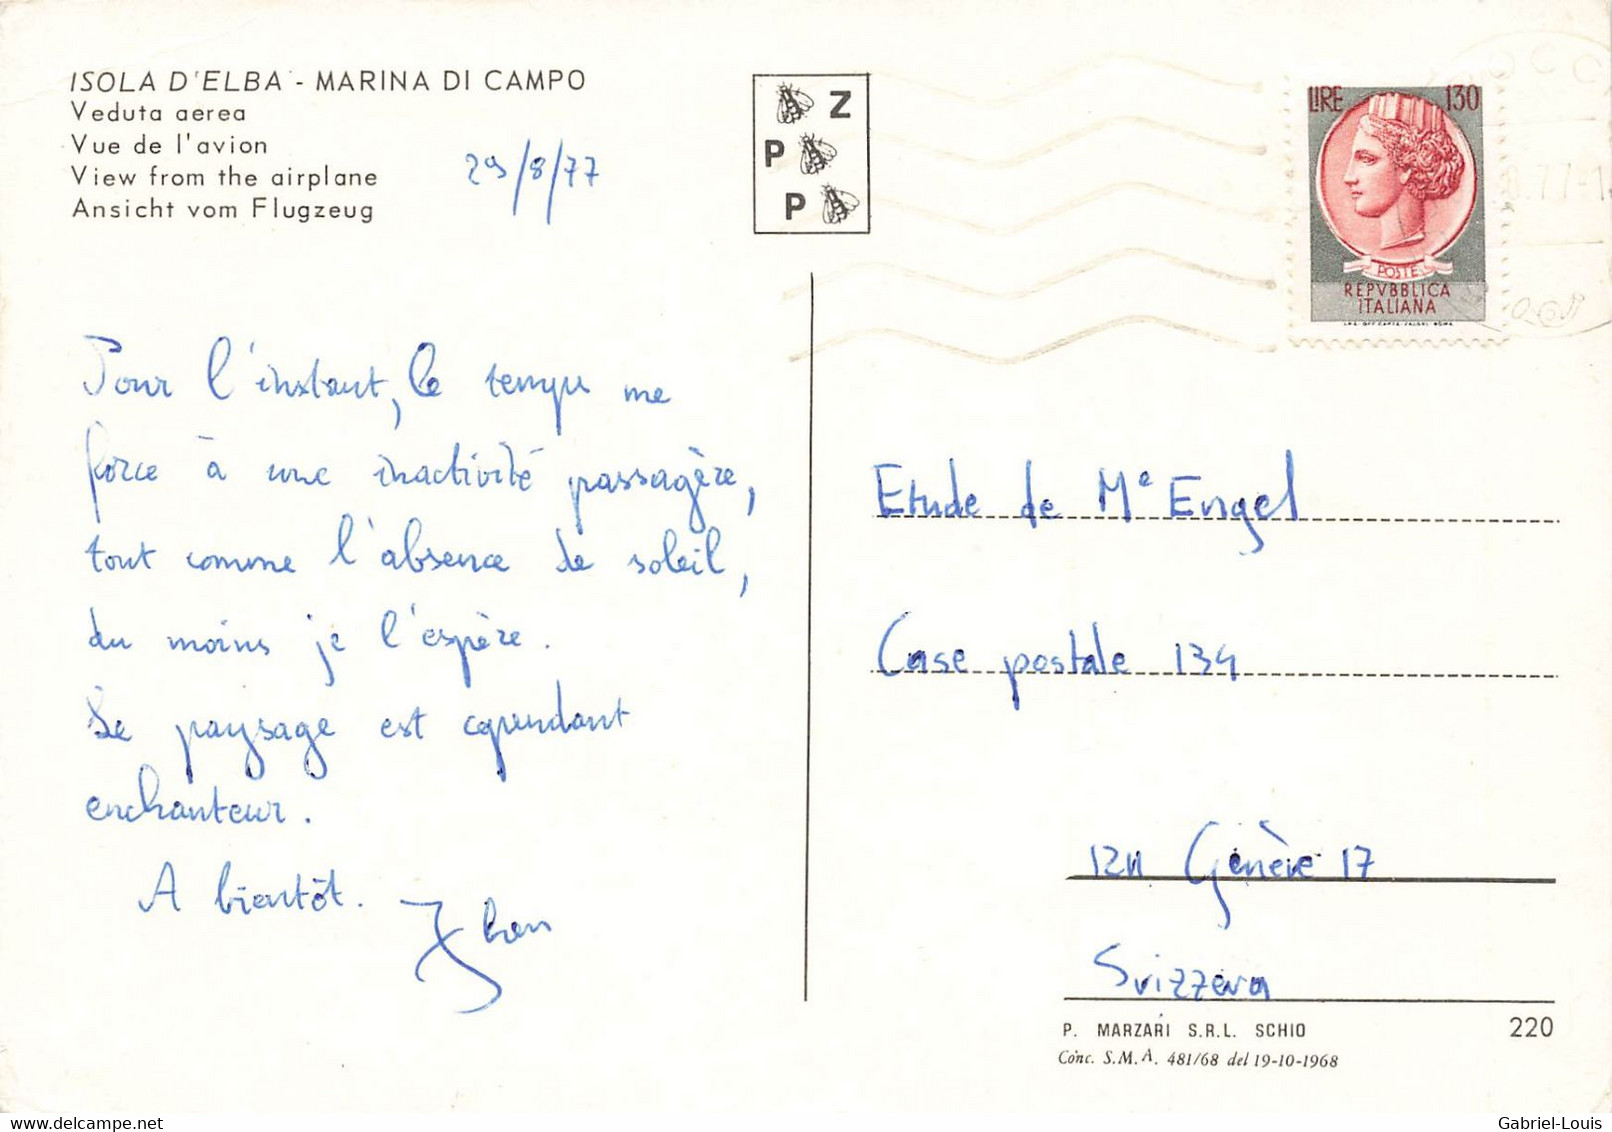 ISOLA D'ELBA - MARINA DI CAMPO
Veduta aerea
Vue de l'avion
View from the airplane
Ansicht vom Flugzeug
29/8/77
Z
P
P
LIRE 130
POSTE
REPVBBLICA
ITALIANA
Pour l'instant, le temps me
force à une inactivité passagère,
tout comme l'absence de soleil,
du moins je l'espère.
Le paysage est cependant
enchanteur.
A bientôt.
Etude de Me Engel
Case postale 134
1211 Genève 17
Svizzera
P. MARZARI S.R.L. SCHIO
220
Conc. S.M.A. 481/68 del 19-10-1968
Gabriel-Louis